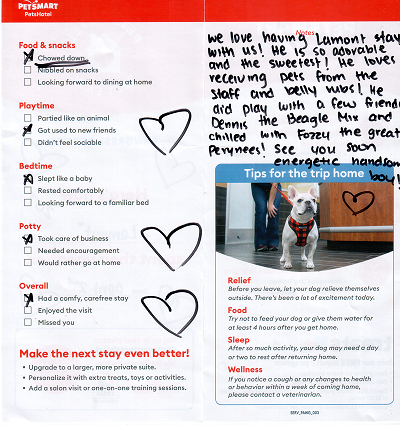 PETSMART
PetsHotel
Food & snacks
Chowed down
Nibbled on snacks
Looking forward to dining at home
Playtime
Partied like an animal
Got used to new friends
Didn't feel sociable
Bedtime
Slept like a baby
Rested comfortably
Looking forward to a familiar bed
Potty
Took care of business
Needed encouragement
Would rather go at home
Overall
Had a comfy, carefree stay
Enjoyed the visit
Missed you
Make the next stay even better!
• Upgrade to a larger, more private suite.
• Personalize it with extra treats, toys or activities.
• Add a salon visit or one-on-one training sessions.
Notes
we love having Lamont stay
with us! He is so adorable
and the sweetest! He loves
receiving pets from the
staff and belly rubs! He
did play with a few friends
Dennis the Beagle Mix and
chilled with Fozzy the great
Perynees! See you soon
energetic handsome
boy!
Tips for the trip home
Relief
Before you leave, let your dog relieve themselves
outside. There's been a lot of excitement today.
Food
Try not to feed your dog or give them water for
at least 4 hours after you get home.
Sleep
After so much activity, your dog may need a day
or two to rest after returning home.
Wellness
If you notice a cough or any changes to health
or behavior within a week of coming home,
please contact a veterinarian.